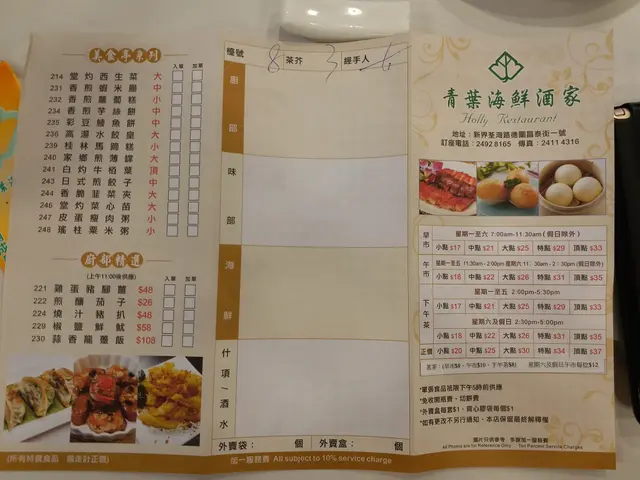 美食亭系列
入單 加單
214 堂灼西生菜 大
231 香煎蝦米腸 中
232 香煎蘿蔔糕 小
234 香煎芋絲餅 中
235 彩豆鯪魚餅 中
236 高湯水餃皇
239 桂林馬蹄糕 小
240 家鄉煎薄罉 大
241 白灼牛栢葉 頂
243 日式煎餃子 中
244 香脆韮菜夾 中
246 堂灼菜心苗 大
247 皮蛋瘦肉粥 小
248 瑤柱粟米粥 小
廚部精選
(上午11:00後供應)
入單 加單
221 雞蛋豬腳薑 $48
222 煎釀茄子 $26
224 燒汁豬扒 $48
229 椒鹽鮮魷 $58
230 蒜香龍躉飯 $108
(所有特價食品
檯號 8 茶芥 3 經手人
廚部
味部
海鮮
什項/酒水
外賣袋: 個 外賣盒: 個
加一服務費 All subject to 10% service charge
青葉海鮮酒家
Holly Restaurant
地址:新界荃灣路德圍昌泰街一號
訂座電話:2492 8165 傳真:2411 4316
早市 星期一至六 7:00am-11:30am (假日除外)
小點 $17 中點 $21 大點 $25 特點 $29 頂點 $33
午市
小點 $18 中點 $22 大點 $26 特點 $31 頂點 $35
下午茶 星期一至五 2:00pm-5:30pm
小點 $17 中點 $21 大點 $25 特點 $29 頂點 $33
星期六及假日 2:30pm-5:00pm
小點 $18 中點 $22 大點 $26 特點 $31 頂點 $35
正價 小點 $20 中點 $25 大點 $30 特點 $34 頂點 $37
星期六及假日午市每位$12
*免收開瓶費、切餅費
*外賣盒每個$1, 背心膠袋每個$1
*如有更改不另行通知,本店保留最終解釋權
圖片只供參考 多謝加一服務費
All Photos are for Reference Only Ten Percent Service Charges